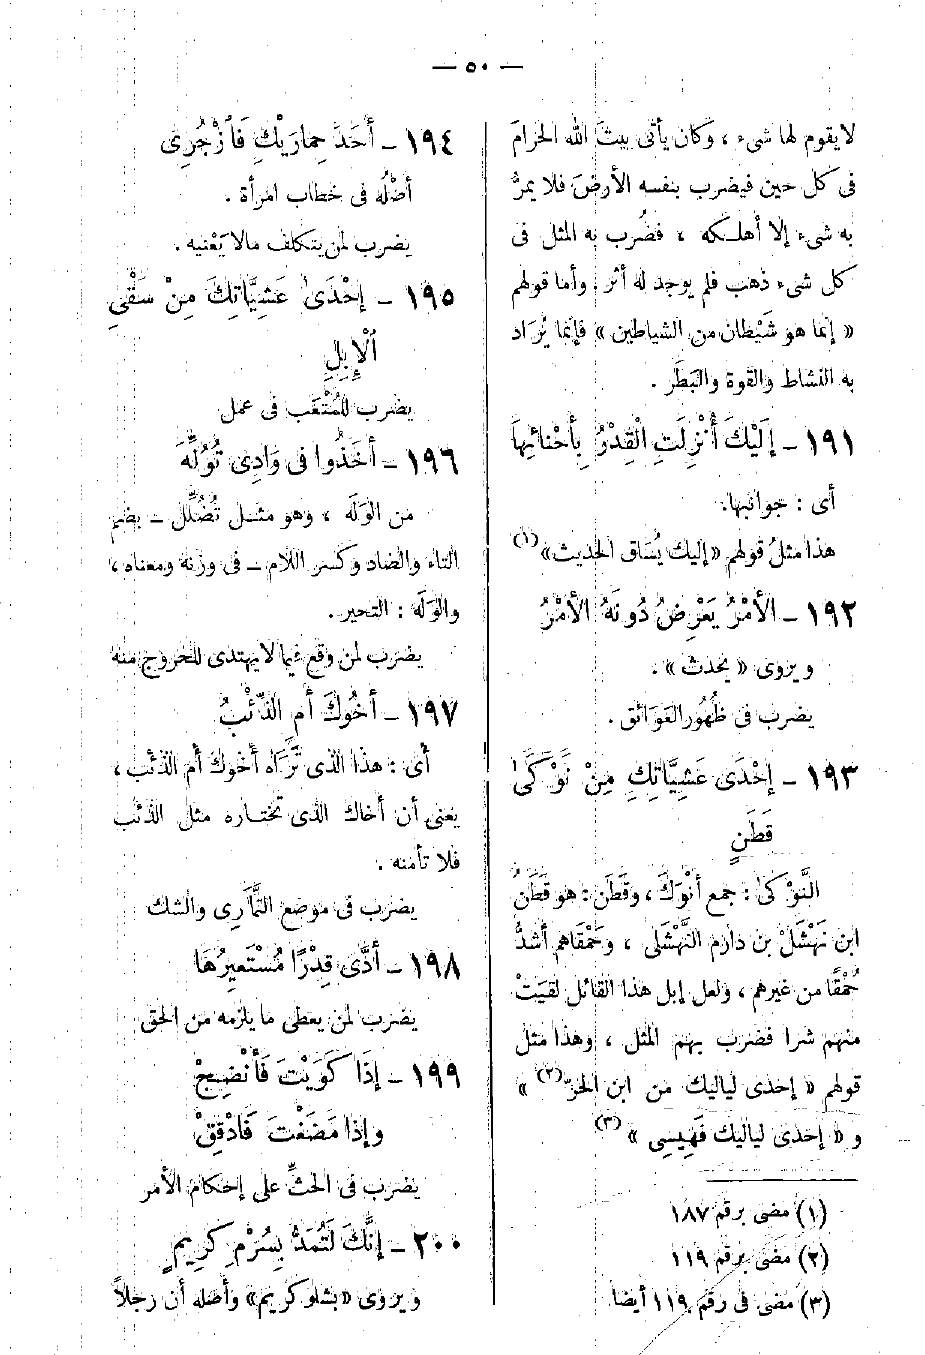 — ٥٠ —
لا يقوم لها شىء ، وكان يأتى بيتَ الله الحرامَ
فى كل حين فيضرب بنفسه الأرضَ فلا يمرُّ
به شىء إلا أهلكه ، فضُرب به المثل فى
كل شىء ذهب فلم يوجد له أثر ، وأما قولهم
« إنما هو شَيْطان من الشياطين » فإنما يُرَاد
به النشاط والقوة والبَطَر .
١٩١ – إِلَيْكَ أُنْزِلَتِ الْقِدْرُ بِأَحْنَائِهاَ
أى : جوانبها.
هذا مثلُ قولهم «إليك يُسَاق الحديث»(١)
١٩٢ – الأَمْرُ يَعْرِضُ دُونَهُ الأَمْرُ
ويروى « يحدث » .
يضرب فى ظُهُور العَوَائق .
١٩٣ – إِحْدَى عَشِيَّاتِكِ مِنْ نَوْكَىٰ
قَطَنٍ
النَّوْكىٰ : جمع أنْوَكَ ، وقَطَن : هو قَطَنُ
ابن نَهْشَلْ بن دارم النَّهْشَلى ، وحَمْقاهم أشدُّ
حُمْقًا من غيرهم ، ولعل إبل هذا القائل لقيَتْ
منهم شرا فضرب بهم المثل ، وهذا مثل
قولهم « إحدى لياليك من ابن الحرّ(٢) »
و « إحدى لياليك فَهِيسِى »(٣)
(١) مضى برقم ١٨٧
(٢) مضى برقم ١١٩
(٣) مضى فى رقم ١١٩ أيضا
١٩٤ – أَحَدَ حِمارَيْكِ فَازْجُرِى
أصْلُه فى خطاب امرأة .
يضرب لمن يتكلف مالا يَعْنيه .
١٩٥ – إِحْدَىٰ عَشِيَّاتِكَ مِنْ سَقْىِ
الْإِبِلِ
يضرب للمُتْعَب فى عمل
١٩٦ – أَخَذُوا فى وَادِى تُوُلِّهَ
من الوَلَه ، وهو مثل تُضُلِّل – بضم
التاء والضاد وكسر اللام – فى وزنه ومعناه ،
والوَلَه : التحير.
يضرب لمن وقع فيما لا يهتدى للخروج منه
١٩٧ – أَخُوكَ أمِ الذِّئْبُ
أى : هذا الذى تَرَاه أخوك أم الذئب ،
يعنى أن أخاك الذى تختاره مثل الذئب
فلا تأمنه .
يضرب فى موضع التَّمَارِى والشك
١٩٨ – أَدَّى قِدْرًا مُسْتَعِيرُهَا
يضرب لمن يعطى ما يلزمه من الحق
١٩٩ – إِذَا كَوَيْتَ فَأَنْضِجْ
وإذا مَضَغْتَ فَادْقِقْ
يضرب فى الحثِّ على إحكام الأمر
٢٠٠ – إِنَّكَ لَتُمَدُّ بِسُرْمٍ كَرِيمٍ
ويروى «بشلو كريم» وأصله أن رجلاً